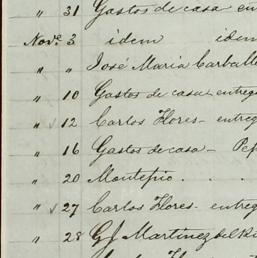 " 31 Gastos de casa en
Novᵉ. 3 idem idem
" " José Maria Carball
" 10 Gastos de casa entreg
" 12 Carlos Flores - entreg
" 16 Gastos de casa - Pep
" 20 Montepio . . .
" 27 Carlos Flores - entreg
" 28 G. J. Martinez del Ri